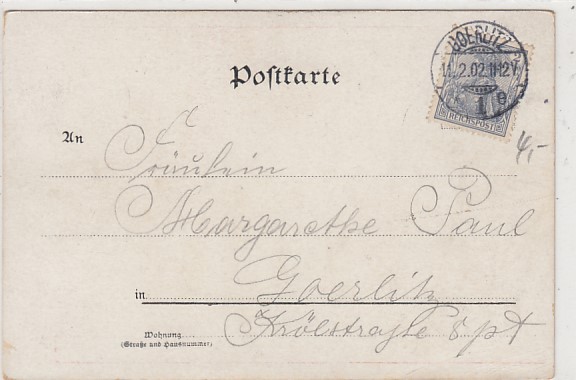 GOERLITZ
11.2.02.11-12V.
1 e
REICHSPOST
Postkarte
4,-
An
Fräulein
Margarethe Paul
in Goerlitz
Wohnung
(Straße und Hausnummer)
8 pt